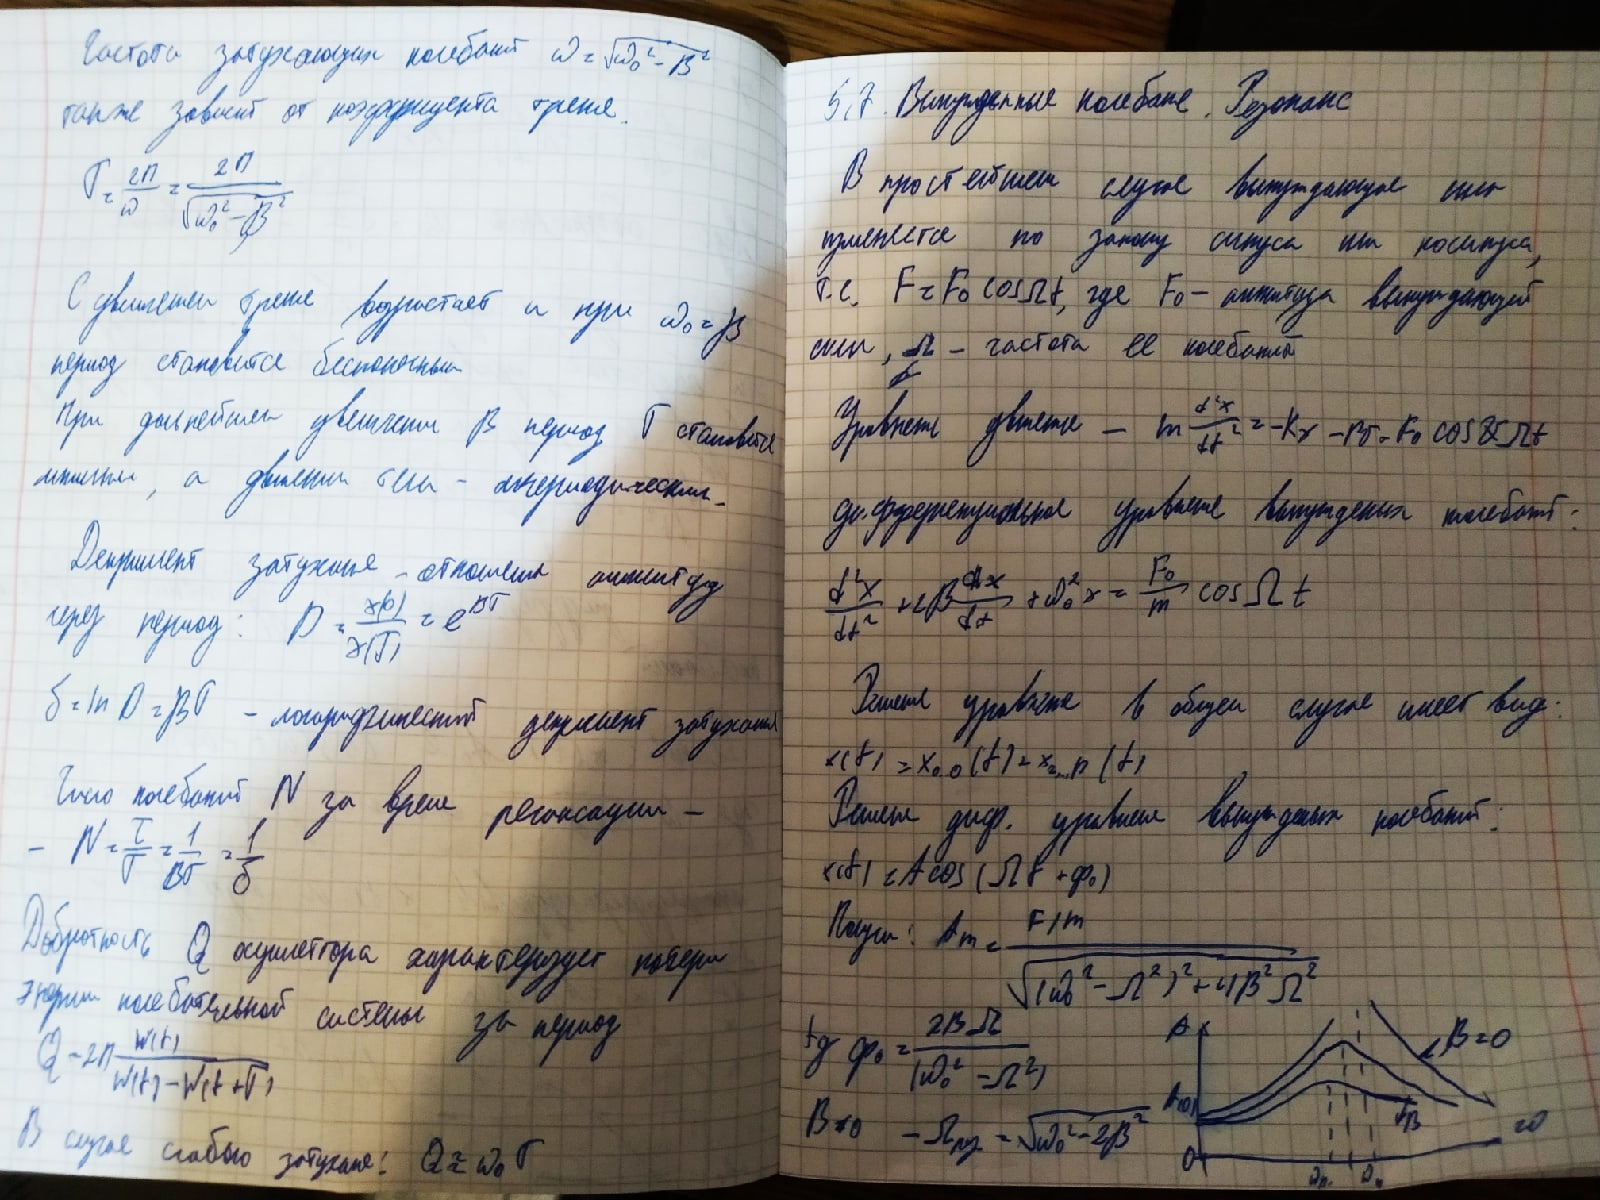 Частота затухающих колебаний ω = √(ω₀² - β²)
также зависит от коэффициента трения.
T = 2π/ω = 2π/√(ω₀² - β²)
С увеличением трения возрастает и при ω₀ = β
период становится бесконечным
При дальнейшем увеличении β период T становится
мнимым, а движение тела - апериодическим.
Декремент затухания - отношение амплитуд
через период: D = x(0)/x(T) = e^βT
δ = ln D = βT - логарифмический декремент затухания
Число колебаний N за время релаксации -
- N = τ/T = 1/βT = 1/δ
Добротность Q осциллятора характеризует потери
энергии колебательной системы за период
Q = 2π W(t)/(W(t) - W(t+T))
В случае слабого затухания: Q ≈ ω₀ T
5.7. Вынужденные колебания. Резонанс
В простейшем случае вынуждающая сила
изменяется по закону синуса или косинуса,
т.е. F = F₀ cosΩt, где F₀ - амплитуда вынуждающей
силы, Ω - частота ее колебаний
Уравнение движения - m d²x/dt² = -kx - F₀ cos Ωt
дифференциальное уравнение вынужденных колебаний:
d²x/dt² + 2β dx/dt + ω₀² x = F₀/m cos Ω t
Решение уравнения в общем случае имеет вид:
x(t) = x₀.₀(t) + (t)
Решение диф. уравнения вынужденных колебаний:
x(t) = A cos(Ωt + φ₀)
Получим: Aₘ = F/m / √((ω₀² - Ω²)² + 4β²Ω²)
tg φ₀ = 2βΩ/(ω₀² - Ω²)
A
β = 0
A(0)
β
β≠0 - Ωрез = √(ω₀² - 2β²)
ω
0